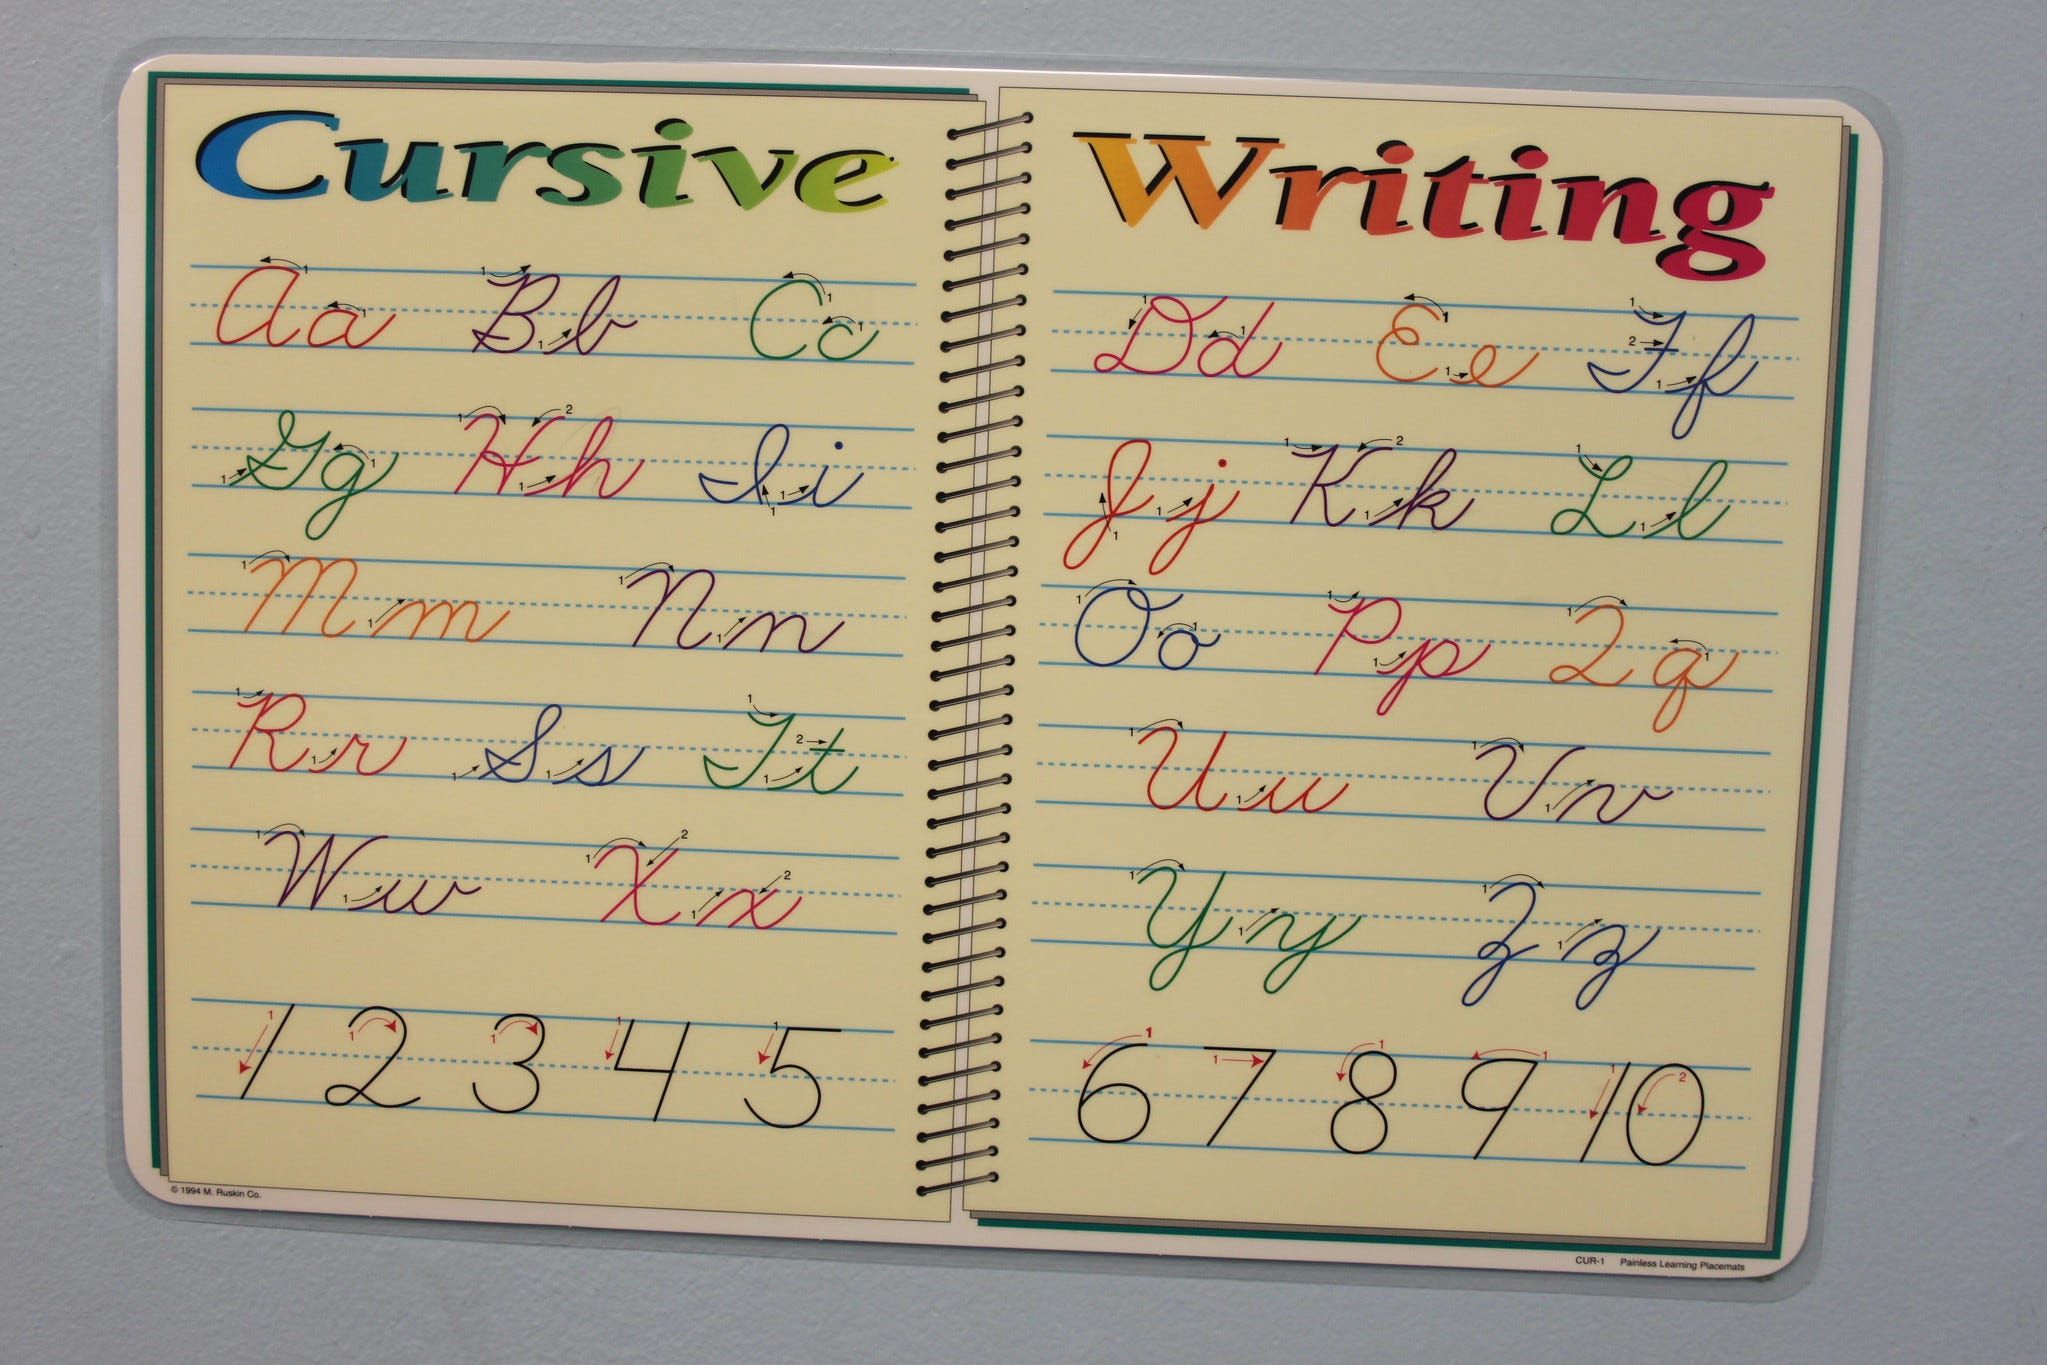 Cursive Writing
Aa Bb Cc Dd Ee Ff
Gg Hh Ii Jj Kk Ll
Mm Nn Oo Pp Qq
Rr Ss Tt Uu Vv
Ww Xx Yy Zz
1 2 3 4 5 6 7 8 9 10
© 1994 M. Ruskin Co.
CUR-1 Painless Learning Placemats